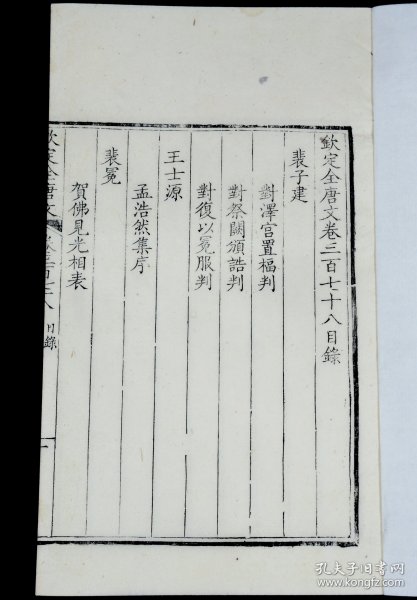 欽定全唐文卷三百七十八目錄
裴子建
對澤宮置楅判
對祭闕頒誥判
對復以冕服判
王士源
孟浩然集序
裴冕
賀佛見光相表
欽定全唐文
卷三百七十八
目錄
一
孔夫子旧书网
www.kongfz.com